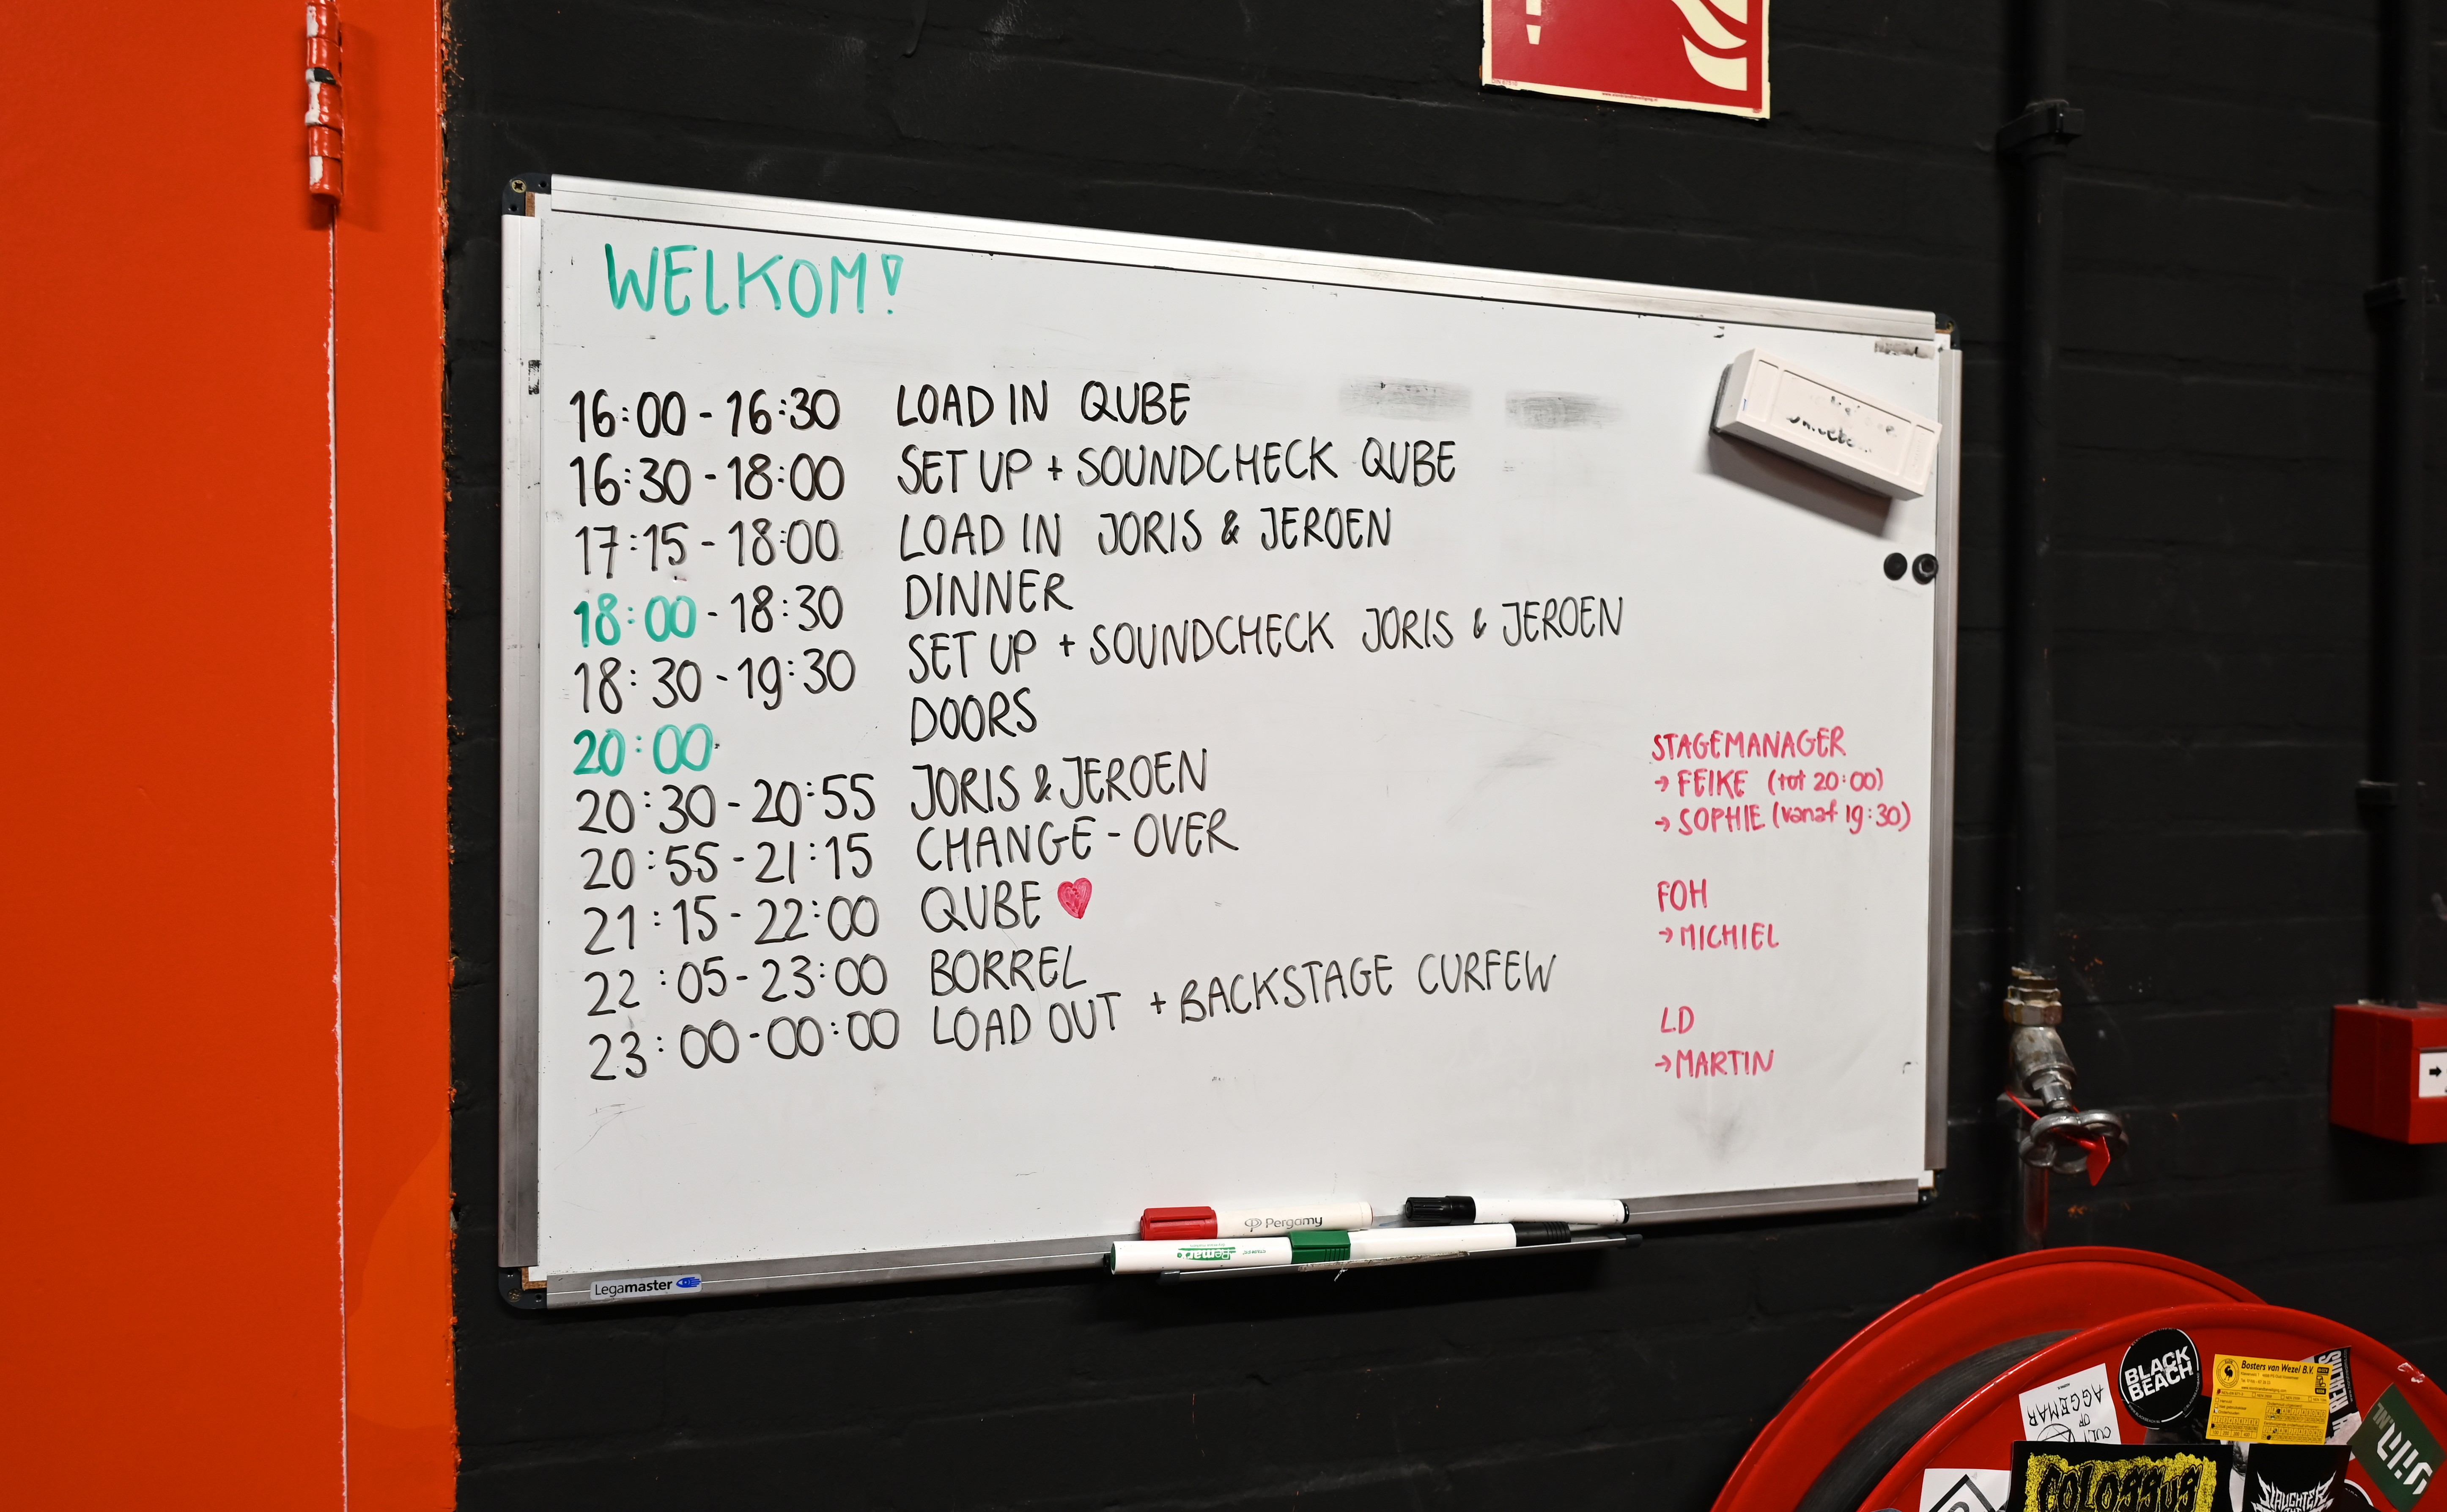 WELKOM!
16:00 - 16:30 LOAD IN QUBE
16:30 - 18:00 SET UP + SOUNDCHECK QUBE
17:15 - 18:00 LOAD IN JORIS & JEROEN
18:00 - 18:30 DINNER
18:30 - 19:30 SET UP + SOUNDCHECK JORIS & JEROEN
20:00 DOORS
20:30 - 20:55 JORIS & JEROEN
20:55 - 21:15 CHANGE - OVER
21:15 - 22:00 QUBE ♥
22:05 - 23:00 BORREL
23:00 - 00:00 LOAD OUT + BACKSTAGE CURFEW
STAGEMANAGER
→ FEIKE (tot 20:00)
→ SOPHIE (vanaf 19:30)
FOH
→ MICHIEL
LD
→ MARTIN
Pergamy
Legamaster
BLACK
BEACH
Bosters van Wezel B.V.
CULT
OF
AGGEMAR
COLOSSUS
SLAUGHTER